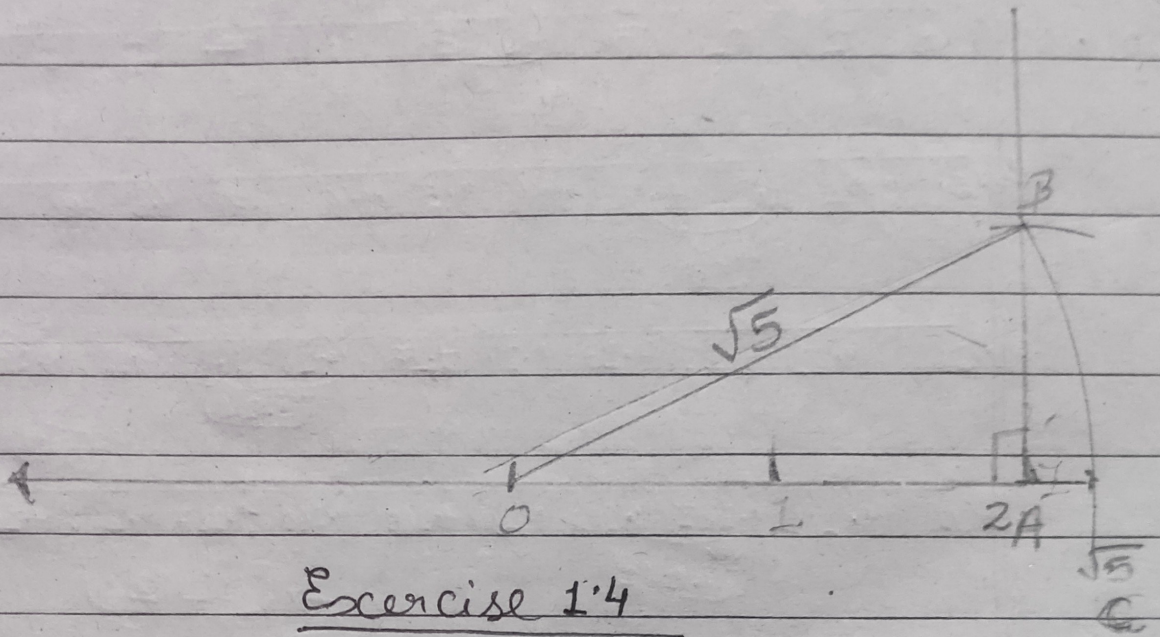 B
√5
0 1 2 A
√5
C
Exercise 1.4